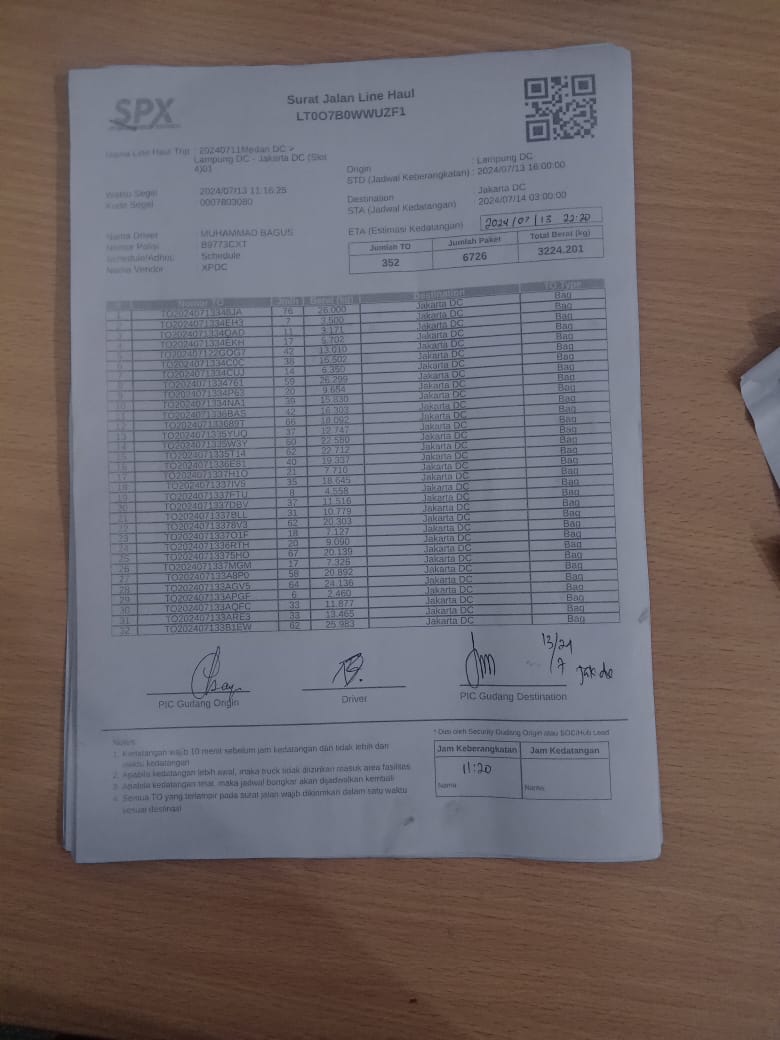 SPX
Surat Jalan Line Haul
LT0O7B0WWUZF1
Nama Line Haul Trip : 20240711Medan DC >
Lampung DC - Jakarta DC (Slot
4)01
Origin : Lampung DC
STD (Jadwal Keberangkatan) : 2024/07/13 16:00:00
Waktu Segel 2024/07/13 11:16:25
Kode Segel 0007803080
Destination Jakarta DC
STA (Jadwal Kedatangan) 2024/07/14 03:00:00
ETA (Estimasi Kedatangan) 2024/07/13 22:20
Nama Driver MUHAMMAD BAGUS
Nomor Polisi B9773CXT
Schedule/Adhoc Schedule
Nama Vendor XPDC
Jumlah TO Jumlah Paket Total Berat (kg)
352 6726 3224.201
# Nomor TO Jmlh Berat (kg) Destination TO Type
1 76 26.000 Jakarta DC Bag
2 TO2024071334EH3 7 3.500 Jakarta DC Bag
3 TO2024071334QAD 11 3.171 Jakarta DC Bag
4 TO2024071334EKH 17 5.702 Jakarta DC Bag
5 42 13.010 Jakarta DC Bag
6 TO2024071334C0C 38 15.502 Jakarta DC Bag
7 TO2024071334CUJ 14 6.350 Jakarta DC Bag
8 TO2024071334761 59 26.299 Jakarta DC Bag
9 TO2024071334P63 20 9.654 Jakarta DC Bag
10 TO2024071334NA1 39 15.830 Jakarta DC Bag
11 TO2024071336BAS 42 16.303 Jakarta DC Bag
12 TO202407133689T 66 18.092 Jakarta DC Bag
13 TO2024071335YUQ 37 12.747 Jakarta DC Bag
14 TO2024071335W3Y 60 22.580 Jakarta DC Bag
15 TO2024071335T14 62 22.712 Jakarta DC Bag
16 TO2024071336E81 40 19.337 Jakarta DC Bag
17 TO2024071337H1O 21 7.710 Jakarta DC Bag
18 TO2024071337IVS 35 18.645 Jakarta DC Bag
19 TO2024071337FTU 8 4.558 Jakarta DC Bag
20 TO2024071337DBV 37 11.516 Jakarta DC Bag
21 TO2024071337BLL 31 10.779 Jakarta DC Bag
22 TO20240713378V3 62 20.303 Jakarta DC Bag
23 TO2024071337O1F 18 7.127 Jakarta DC Bag
24 TO2024071336RTH 20 9.090 Jakarta DC Bag
25 TO20240713375HO 67 20.139 Jakarta DC Bag
26 TO2024071337MGM 17 7.326 Jakarta DC Bag
27 TO202407133A8P0 58 20.892 Jakarta DC Bag
28 TO202407133AGV5 64 24.136 Jakarta DC Bag
29 TO202407133APGF 6 2.460 Jakarta DC Bag
30 TO202407133AQFC 33 11.877 Jakarta DC Bag
31 TO202407133ARE3 33 13.465 Jakarta DC Bag
32 TO202407133B1EW 62 25.983 Jakarta DC Bag
13/24
7
PIC Gudang Origin Driver PIC Gudang Destination
* Diisi oleh Security Gudang Origin atau SOC/Hub Lead
Notes:
1. Kedatangan wajib 10 menit sebelum jam kedatangan dan tidak lebih dari
waktu kedatangan
2. Apabila kedatangan lebih awal, maka truck tidak diizinkan masuk area fasilitas
3. Apabila kedatangan telat, maka jadwal bongkar akan dijadwalkan kembali
4. Semua TO yang terlampir pada surat jalan wajib dikirimkan dalam satu waktu
sesuai destinasi
Jam Keberangkatan Jam Kedatangan
11:20
Nama: Nama: